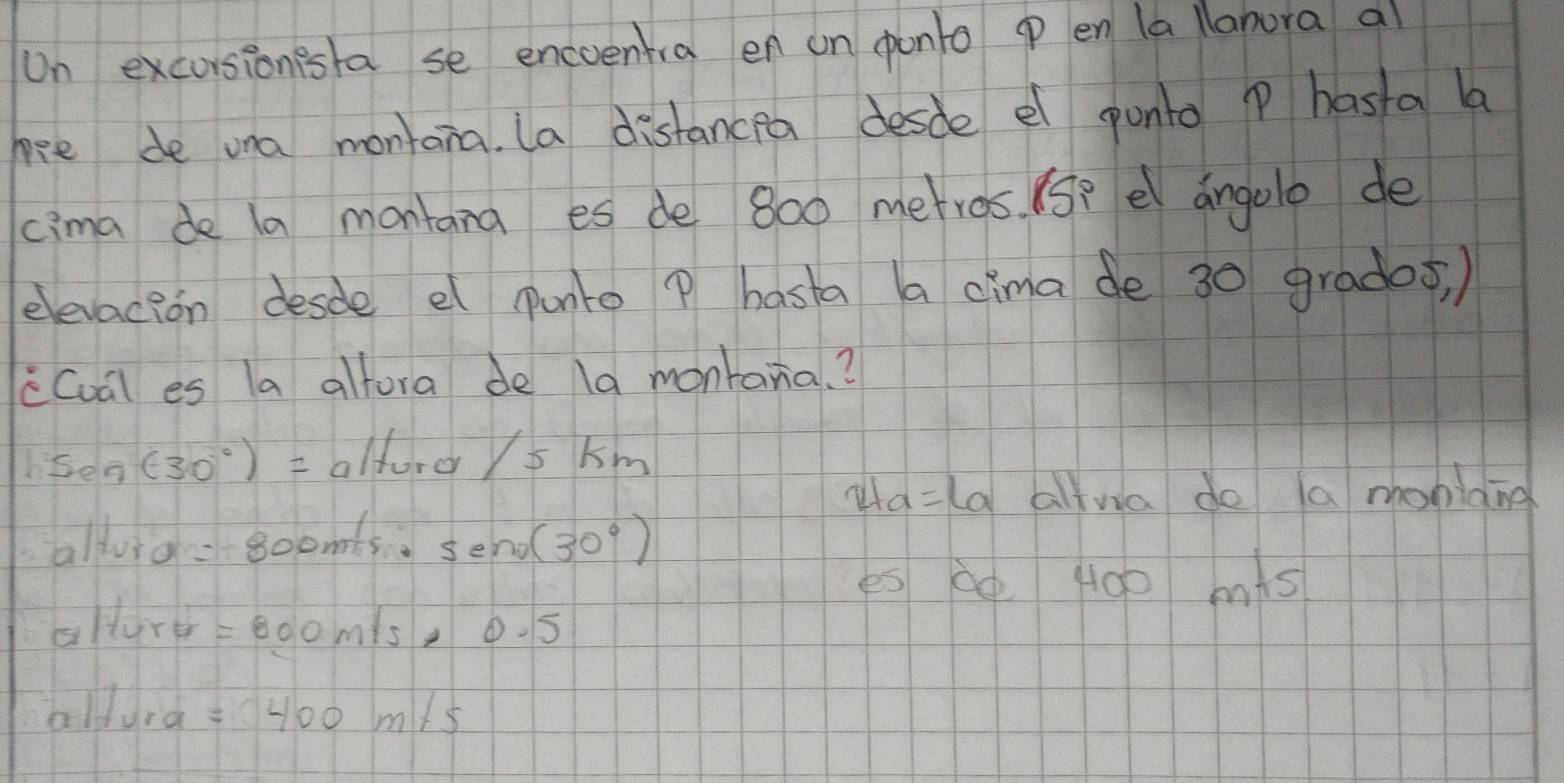 Un excursionista se encuentra en un punto P en la llanura al
pie de una montaña. La distancia desde el punto P hasta la
cima de la montana es de 800 metros. (Si el ángulo de
elevación desde el punto P hasta la cima de 30 grados,)
¿Cuál es la altura de la montaña.?
Sen (30°) = altura / 5 Km
altura = 800mts . seno(30°)
altura = 800 mts . 0.5
altura = 400 mts
Rta = La altura de la montaña
es de 400 mts